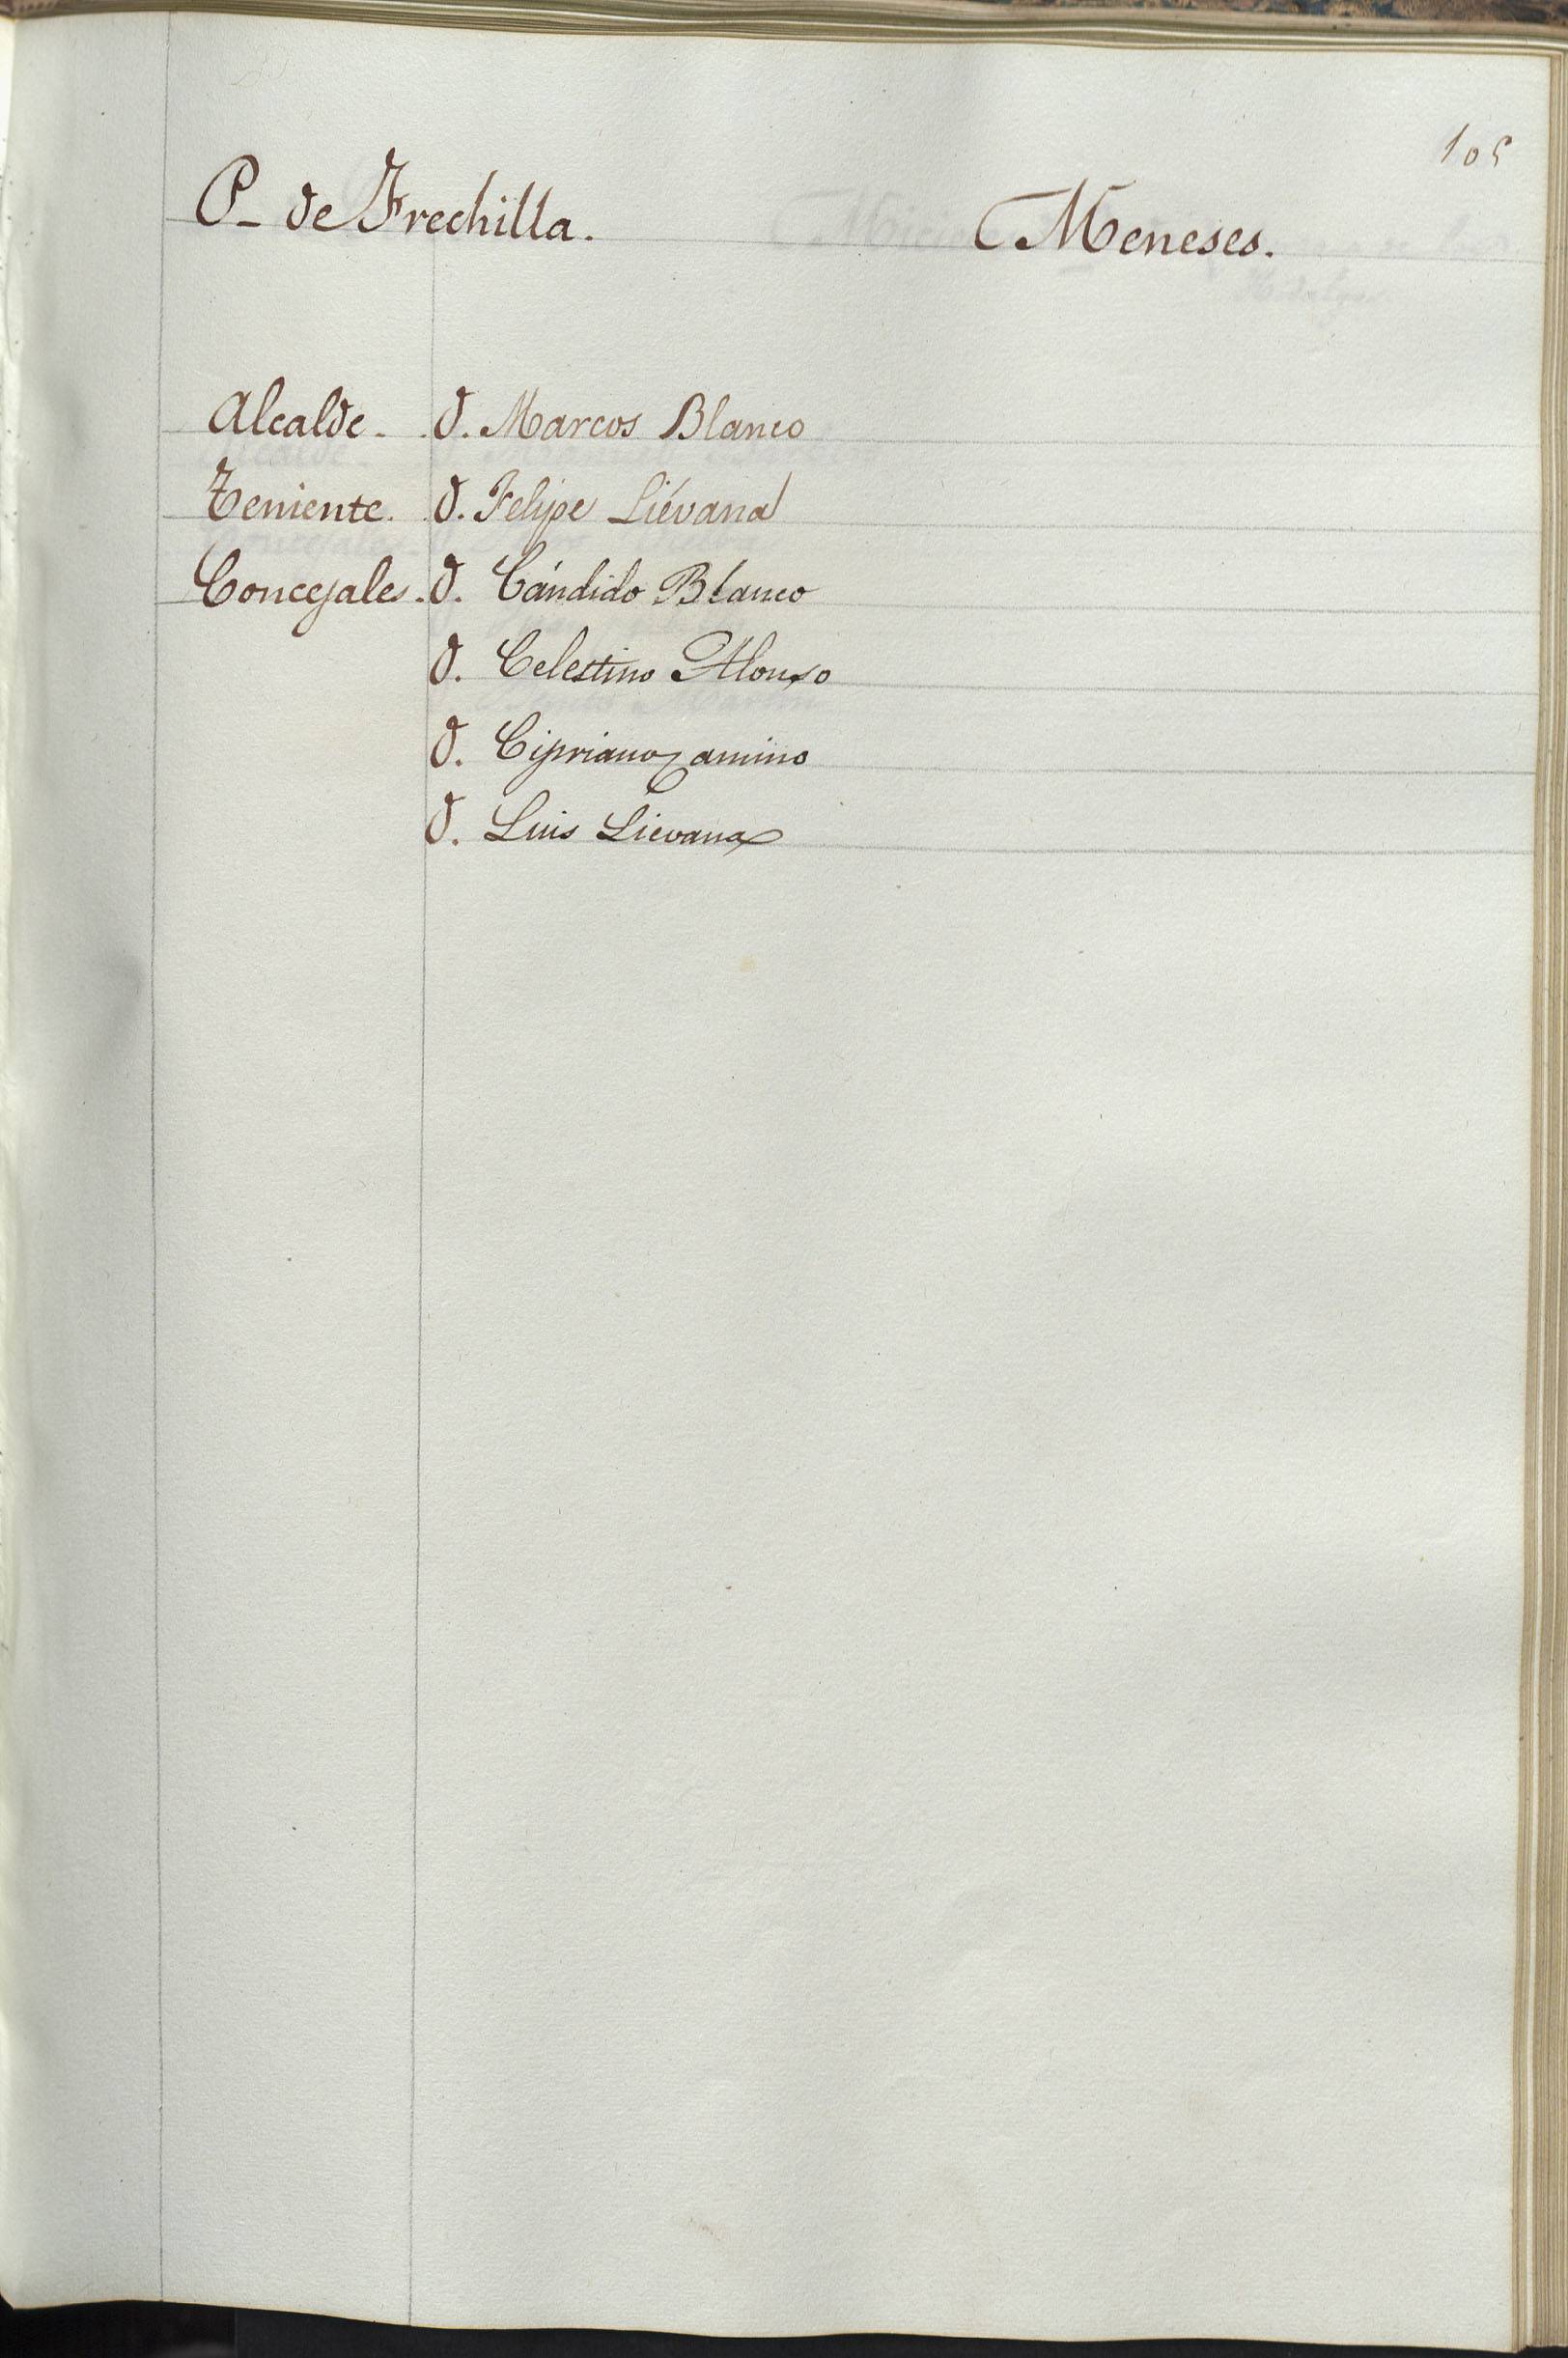 105
P- de Frechilla. Meneses.
Alcalde - D. Marcos Blanco
Teniente. D. Felipe Liévana
Concejales. D. Cándido Blanco
D. Celestino Alonso
D. Cipriano Camino
D. Luis Lievana